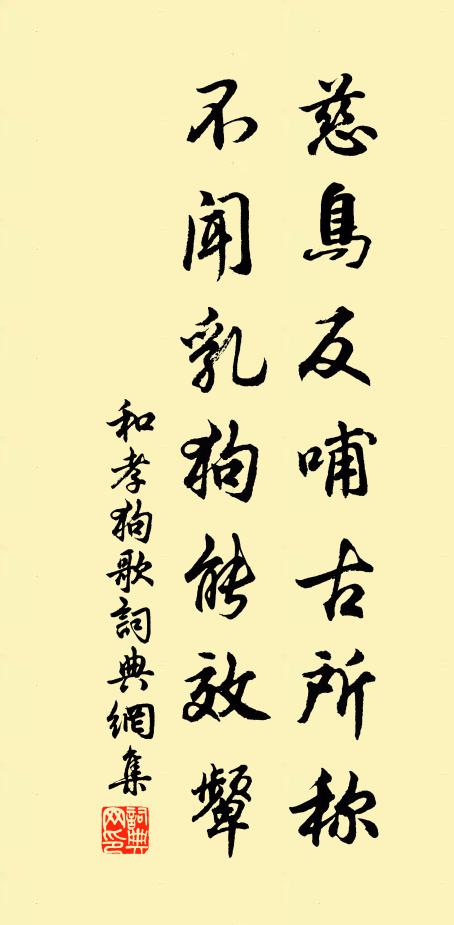 慈烏反哺古所称
不闻乳狗能效颦
和孝狗歌詞典網集
詞典网印